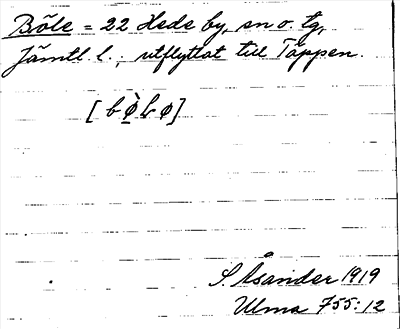 Böle = 22 Hede by, sn o. tg,
Jämtl l.; utflyttat till Täppen.
[bø̀Lø]
S. Åsander 1919
Ulma 755:12